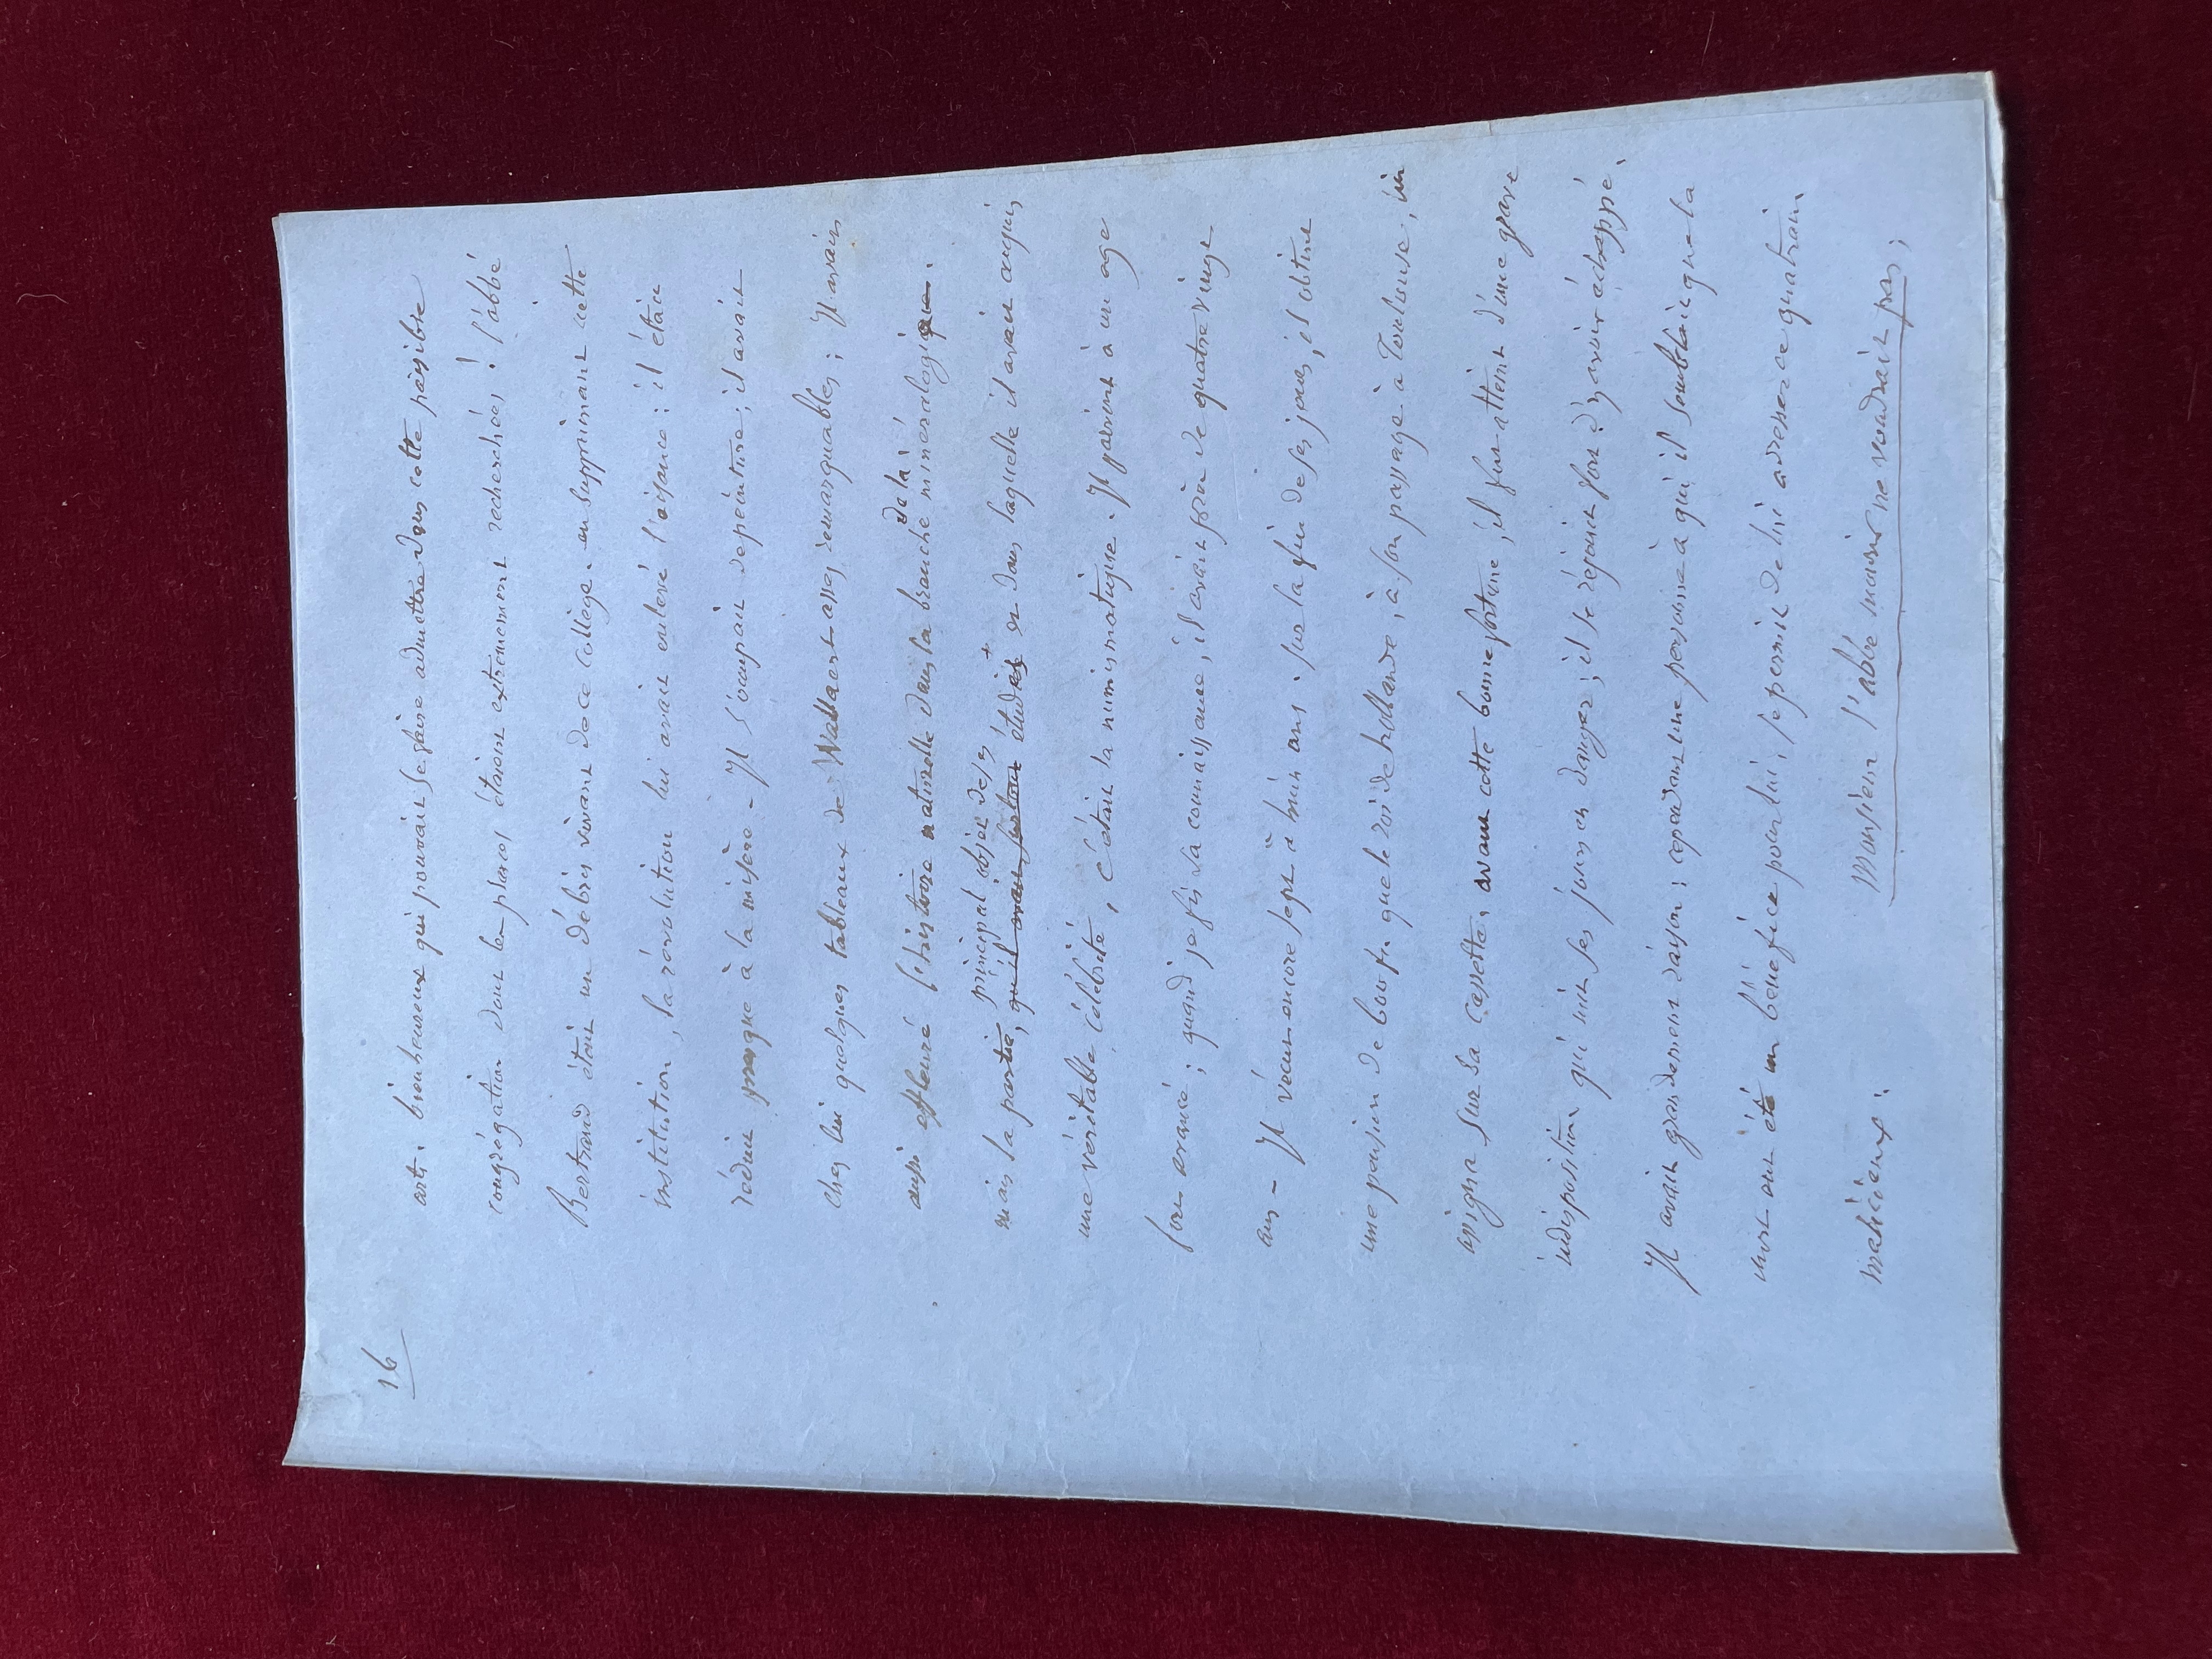 16
arts. bienheureux qui pouvait se faire admettre dans cette paisible
congrégation dont les places étaient extrêmement recherchées ! l'abbé
Bertrand était un débris vivant de ce collège. en supprimant cette
institution, la révolution lui avait enlevé l'aisance : il était
réduit presque à la misère - Il s'occupait de peinture ; il avait
chez lui quelques tableaux de assez remarquables ; Il avait
aussi effleuré l'histoire naturelle dans la branche de la minéralogique.
principal objet de ses
mais la partie, qu'il avait surtout études + et dans laquelle il avait acquis
une véritable célébrité, c'était la numismatique. Il parvint à un age
fort avancé ; quand je fis sa connaissance, il avait près de quatre vingt
ans - Il vécut encore sept à huit ans. sur la fin de ses jours, il obtint
une pension de que le roi de hollande, à son passage à Toulouse, lui
assigna sur sa cassette. avant cette bonne fortune, il fut atteint d'une grave
indisposition qui mit ses jours en danger ; il se réjouit fort d'y avoir échappé.
Il avait grandement raison ; cependant une personne à qui il semblait que la
mort eut été un bénéfice pour lui, se permit de lui adresser ce quatrain
malicieux.
Monsieur l'abbé mourir ne voudrait pas ;